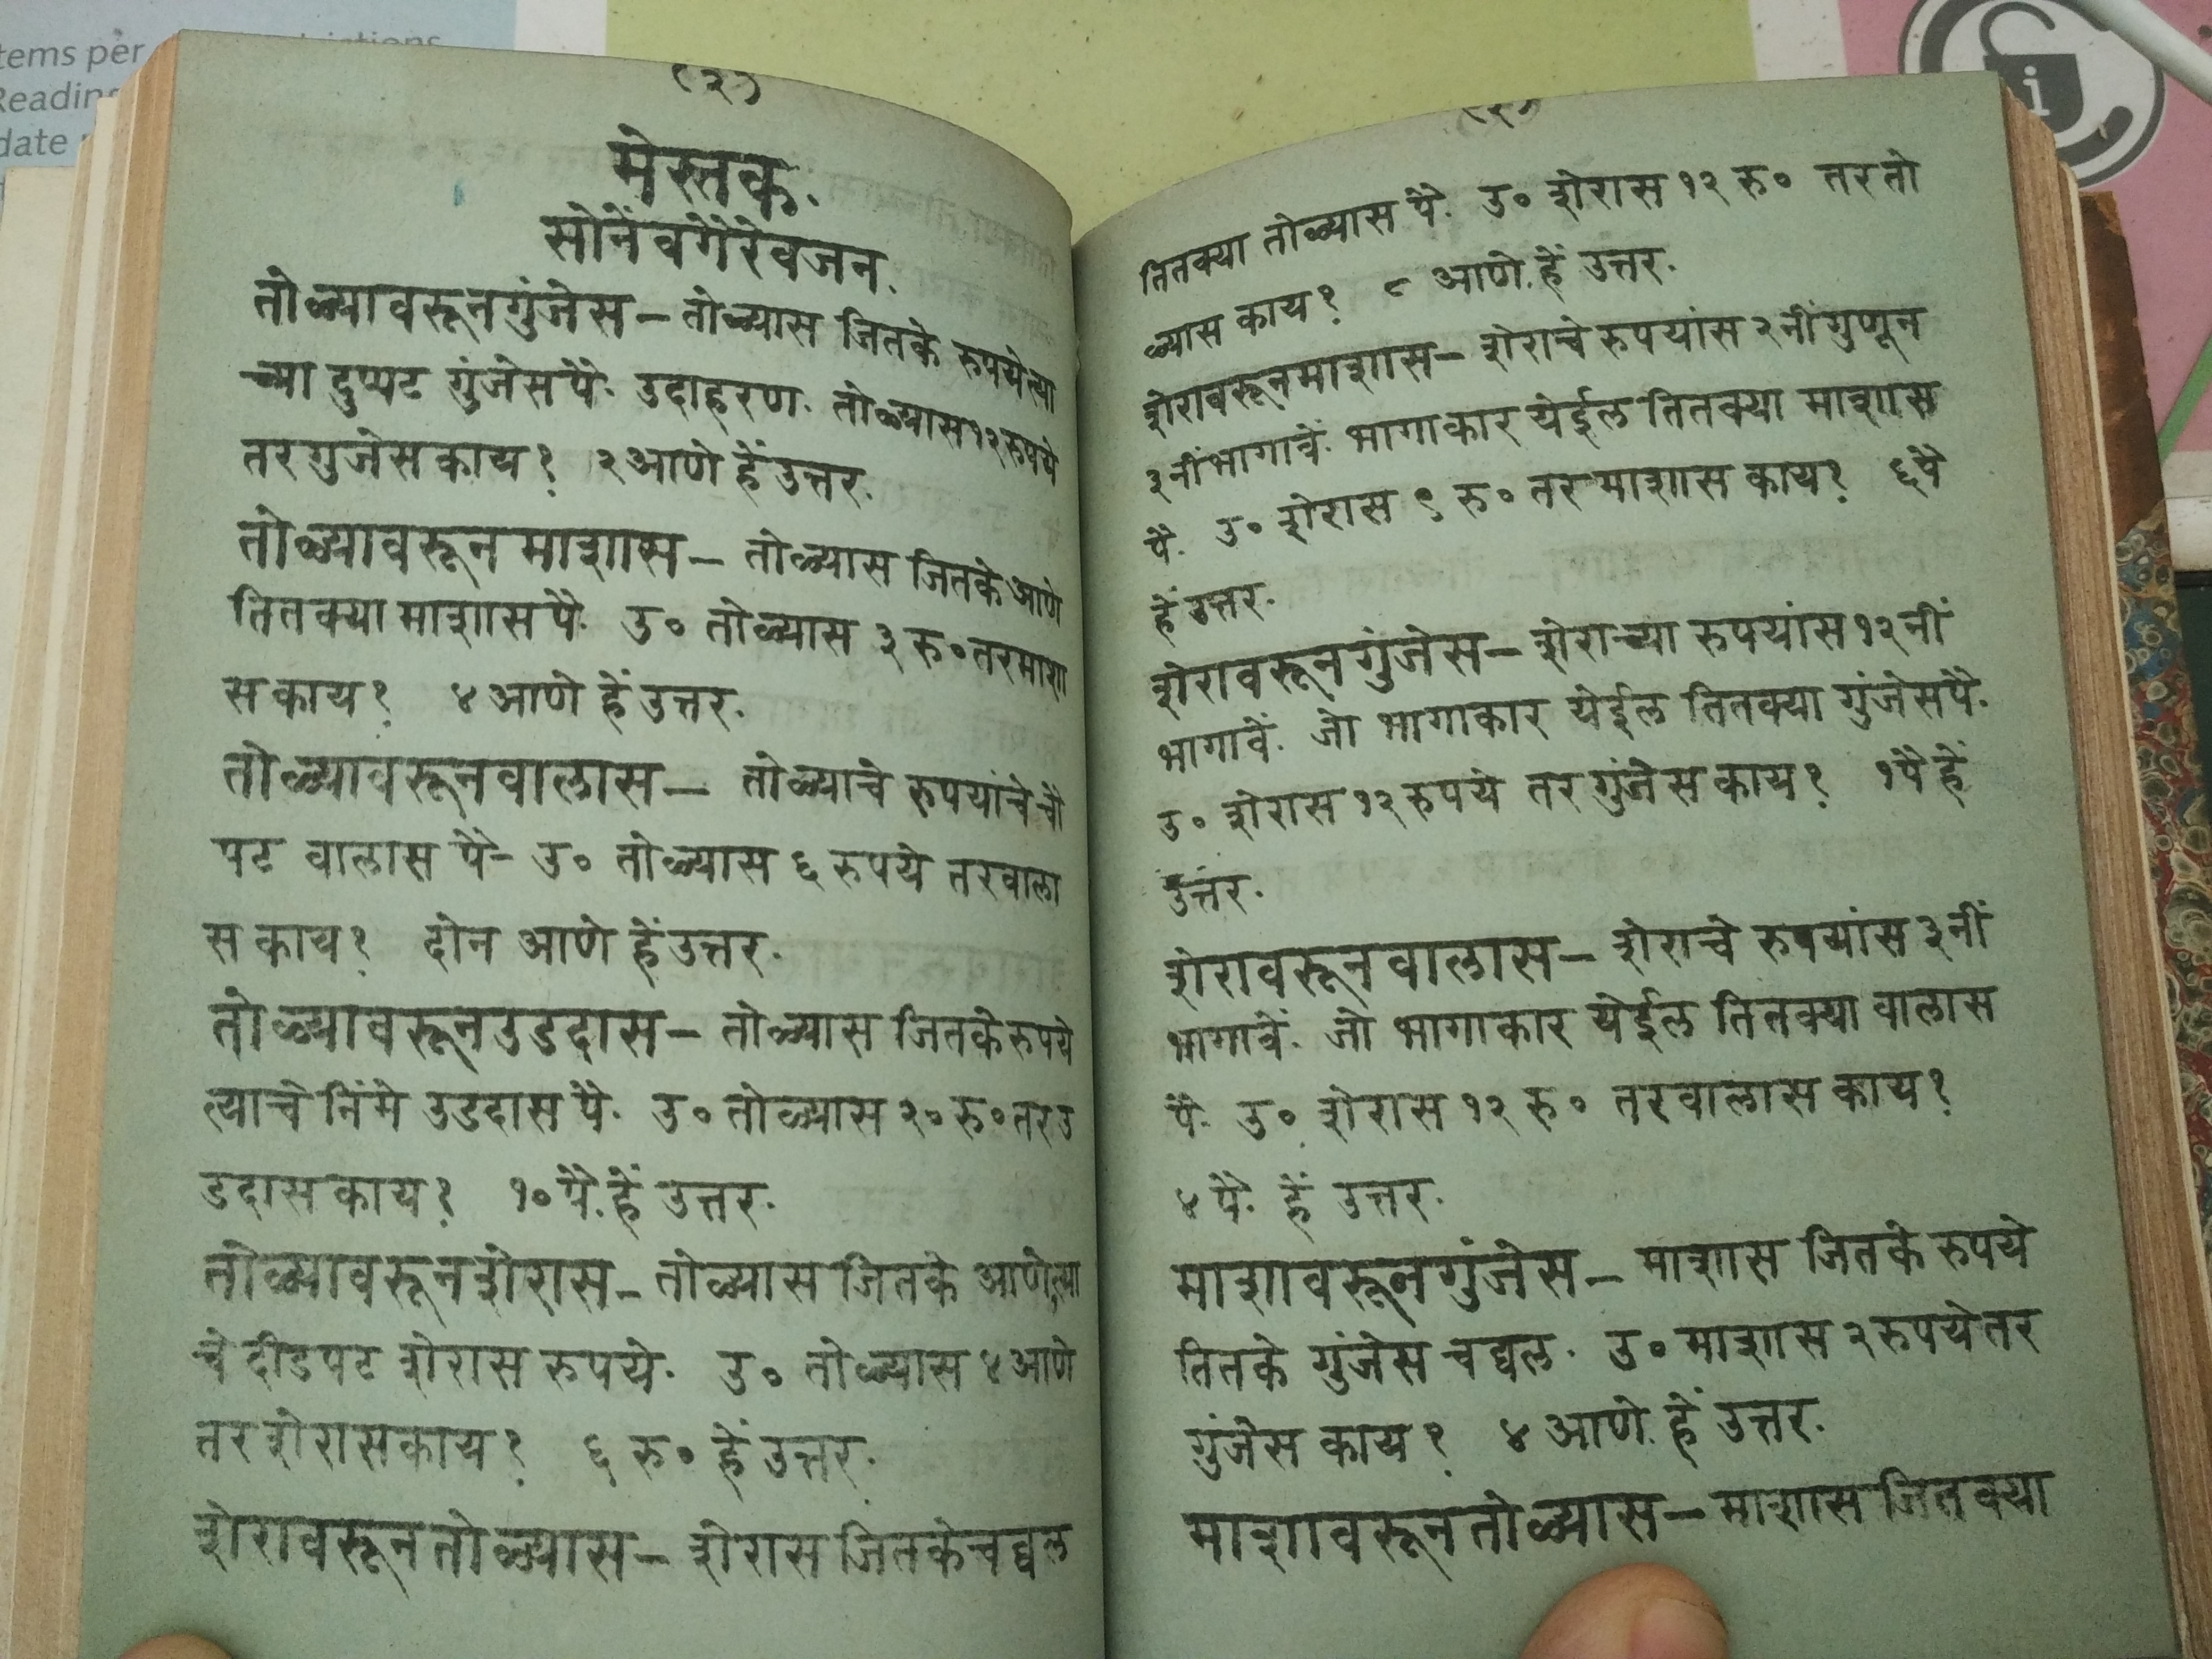 tems per
Reading
date
(२)
मेस्तक.
सोनेंवगैरेवजन.
तोळ्यावरूनगुंजेस— तोळ्यास जितके रुपयेत्या
च्या दुप्पट गुंजेसपै. उदाहरण. तोळ्यास१२रुपये
तरगुजेसकाय? २आणे हेंउत्तर.
तोळ्यावरून माशास— तोळ्यास जितकेआणे
तितक्या माशासपै. उ० तोळ्यास ३ रु०तरमाशा
स काय? ४आणे हेंउत्तर.
तोळ्यावरूनवालास— तोळ्याचे रुपयांचेचौ
पट वालास पै- उ० तोळ्यास ६ रुपये तरवाला
स काय? दोन आणे हेंउत्तर.
तोळ्यावरूनउडदास— तोळ्यास जितकेरुपये
त्याचे निंमे उडदास पै. उ० तोळ्यास २० रु०तरउ
डदास काय? १०पै.हें उत्तर.
तोळ्यावरूनशेरास— तोळ्यास जितके आणेत्या
चे दीडपट शेरास रुपये. उ० तोळ्यास ४आणे
तर शेरासकाय? ६ रु० हेंउत्तर.
शेरावरूनतोळ्यास— शेरास जितकेचवल
तितक्या तोळ्यास पै. उ० शेरास १२ रु० तर तो
ळ्यास काय? ८ आणे.हें उत्तर.
शेरावरूनमाशास— शेराचे रुपयांस २नीं गुणून
३नींभागावें. भागाकार येईल तितक्या माशास
पै. उ० शेरास ९ रु० तर माशास काय? ६पै
हेंउत्तर.
शेरावरूनगुंजेस— शेराच्या रुपयांस १२नीं
भागावें. जो भागाकार येईल तितक्या गुंजेसपै.
उ० शेरास १२रुपये तर गुंजेस काय? १पै हें
उत्तर.
शेरावरूनवालास— शेराचे रुपयांस ३नीं
भागावें. जो भागाकार येईल तितक्या वालास
पै. उ० शेरास १२ रु० तरवालास काय?
४पै. हें उत्तर.
माशावरूनगुंजेस— माशास जितके रुपये
तितके गुंजेस चवल. उ० माशास २रुपये तर
गुंजेस काय? ४आणे.हें उत्तर.
माशावरूनतोळ्यास— माशास जितक्या